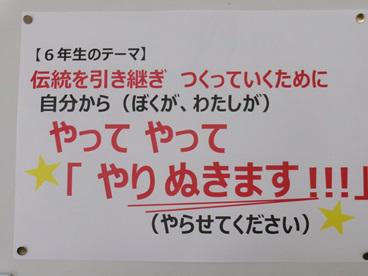 【６年生のテーマ】
伝統を引き継ぎ　つくっていくために
自分から（ぼくが、わたしが）
やって やって
「 やりぬきます !!!」
（やらせてください）